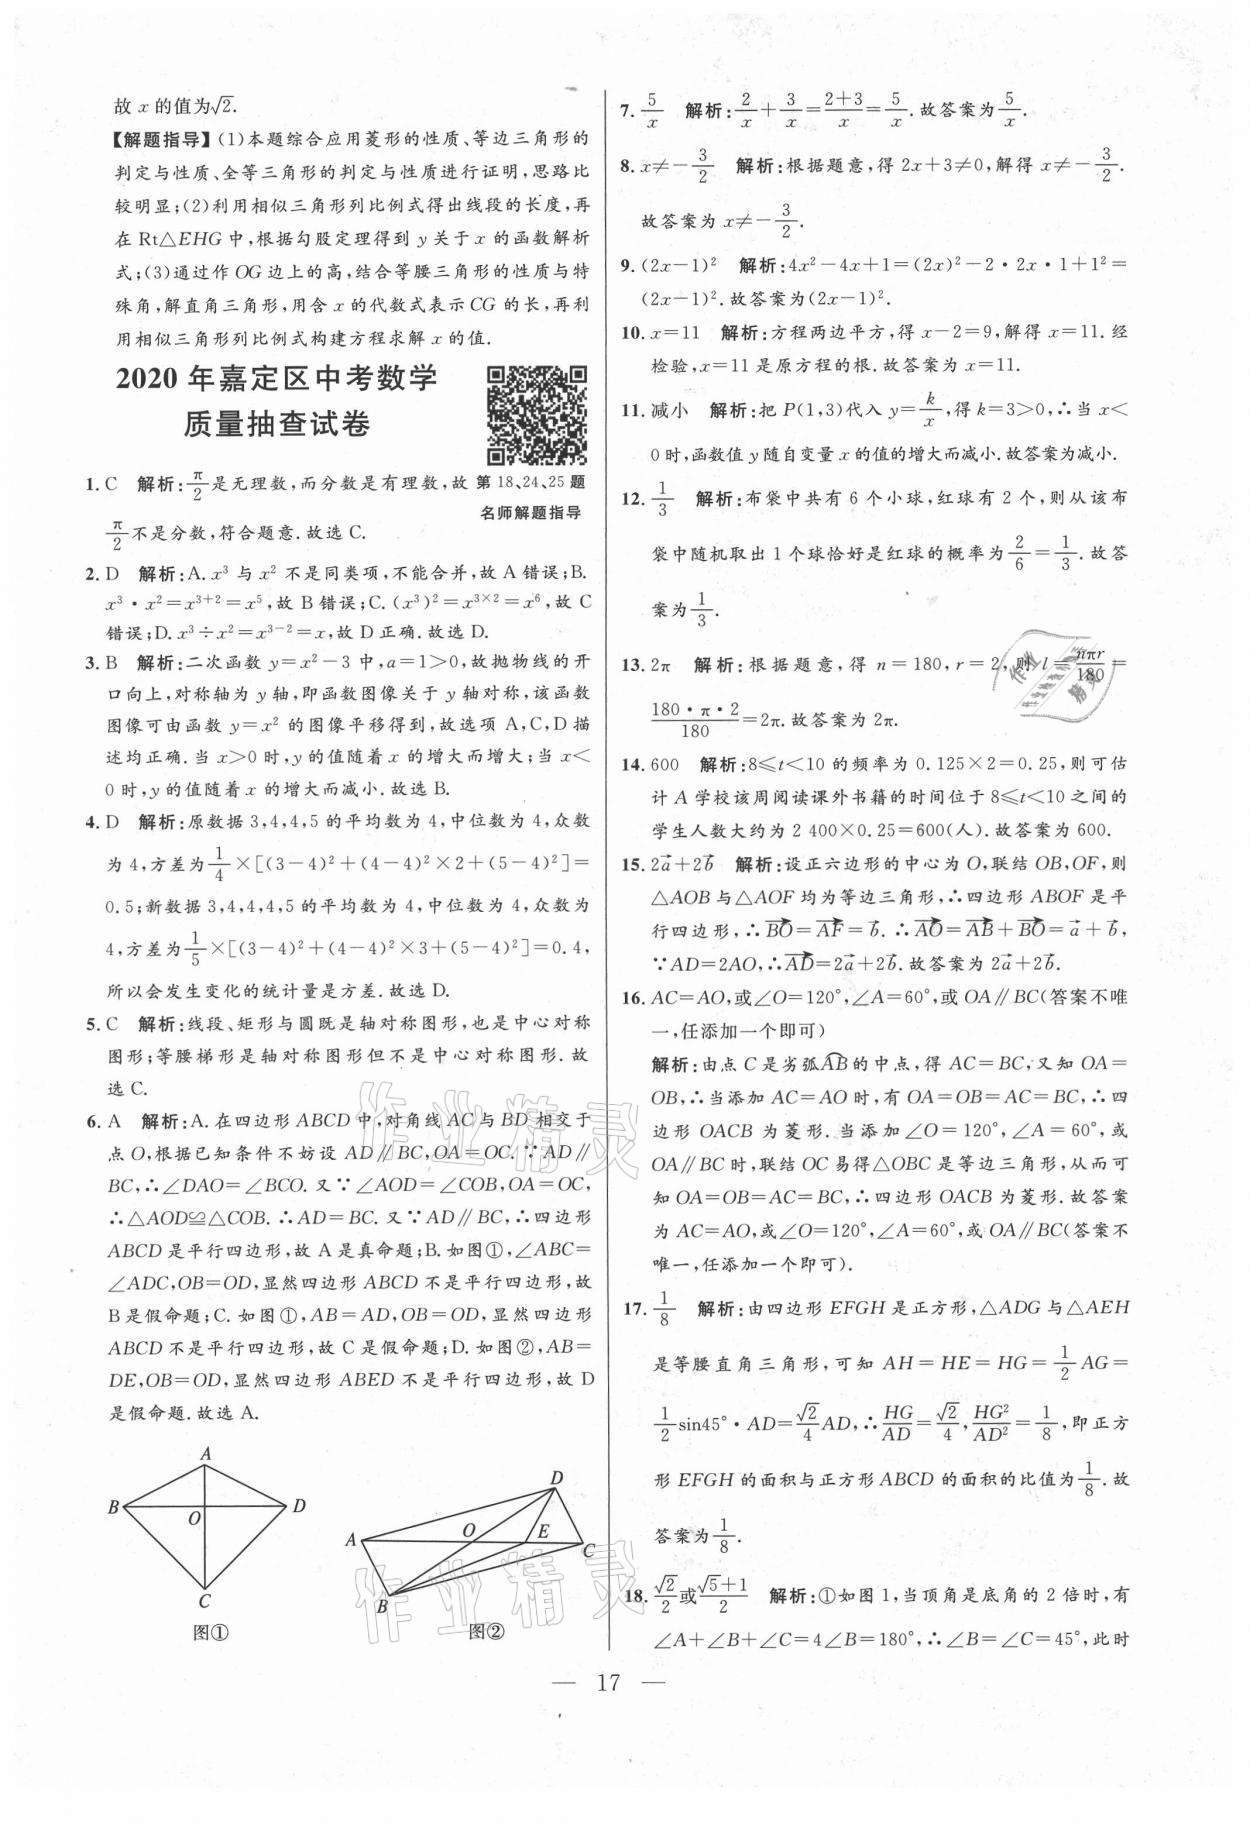 故 x 的值为√2.
【解题指导】(1)本题综合应用菱形的性质、等边三角形的
判定与性质、全等三角形的判定与性质进行证明,思路比
较明显;(2)利用相似三角形列比例式得出线段的长度,再
在 Rt△EHG 中,根据勾股定理得到 y 关于 x 的函数解析
式;(3)通过作 OG 边上的高,结合等腰三角形的性质与特
殊角,解直角三角形,用含 x 的代数式表示 CG 的长,再利
用相似三角形列比例式构建方程求解 x 的值.
2020 年嘉定区中考数学
质量抽查试卷
第 18、24、25 题
名师解题指导
1. C 解析:π/2是无理数,而分数是有理数,故
π/2不是分数,符合题意.故选 C.
2. D 解析:A. x³ 与 x² 不是同类项,不能合并,故 A 错误;B.
x³·x²=x³⁺²=x⁵,故 B 错误;C. (x³)²=x³ˣ²=x⁶,故 C
错误;D. x³÷x²=x³⁻²=x,故 D 正确.故选 D.
3. B 解析:二次函数 y=x²-3 中,a=1>0,故抛物线的开
口向上,对称轴为 y 轴,即函数图像关于 y 轴对称,该函数
图像可由函数 y=x² 的图像平移得到,故选项 A,C,D 描
述均正确.当 x>0 时,y 的值随着 x 的增大而增大;当 x<
0 时,y 的值随着 x 的增大而减小.故选 B.
4. D 解析:原数据 3,4,4,5 的平均数为 4,中位数为 4,众数
为 4,方差为1/4×[(3-4)²+(4-4)²×2+(5-4)²]=
0.5;新数据 3,4,4,4,5 的平均数为 4,中位数为 4,众数为
4,方差为1/5×[(3-4)²+(4-4)²×3+(5-4)²]=0.4,
所以会发生变化的统计量是方差.故选 D.
5. C 解析:线段、矩形与圆既是轴对称图形,也是中心对称
图形;等腰梯形是轴对称图形但不是中心对称图形.故
选 C.
6. A 解析:A. 在四边形 ABCD 中,对角线 AC 与 BD 相交于
点 O,根据已知条件不妨设 AD∥BC,OA=OC.∵AD∥
BC,∴∠DAO=∠BCO. 又∵∠AOD=∠COB,OA=OC,
∴△AOD≌△COB.∴AD=BC. 又∵AD∥BC,∴四边形
ABCD 是平行四边形,故 A 是真命题;B. 如图①,∠ABC=
∠ADC,OB=OD,显然四边形 ABCD 不是平行四边形,故
B 是假命题;C. 如图①,AB=AD,OB=OD,显然四边形
ABCD 不是平行四边形,故 C 是假命题;D. 如图②,AB=
DE,OB=OD,显然四边形 ABED 不是平行四边形,故 D
是假命题.故选 A.
A
B O D
C
图①
D
A O E C
B
图②
7. 5/x 解析:2/x+3/x=(2+3)/x=5/x.故答案为5/x.
8. x≠-3/2 解析:根据题意,得 2x+3≠0,解得 x≠-3/2.
故答案为 x≠-3/2.
9. (2x-1)² 解析:4x²-4x+1=(2x)²-2·2x·1+1²=
(2x-1)².故答案为(2x-1)².
10. x=11 解析:方程两边平方,得 x-2=9,解得 x=11.经
检验,x=11 是原方程的根.故答案为 x=11.
11. 减小 解析:把 P(1,3)代入 y=k/x,得 k=3>0,∴当 x<
0 时,函数值 y 随自变量 x 的值的增大而减小.故答案为减小.
12. 1/3 解析:布袋中共有 6 个小球,红球有 2 个,则从该布
袋中随机取出 1 个球恰好是红球的概率为2/6=1/3.故答
案为1/3.
13. 2π 解析:根据题意,得 n=180,r=2,则 l=nπr/180=
180·π·2/180=2π.故答案为 2π.
14. 600 解析:8≤t<10 的频率为 0.125×2=0.25,则可估
计 A 学校该周阅读课外书籍的时间位于 8≤t<10 之间的
学生人数大约为 2 400×0.25=600(人).故答案为 600.
15. 2a⃗+2b⃗ 解析:设正六边形的中心为 O,联结 OB,OF,则
△AOB 与△AOF 均为等边三角形,∴四边形 ABOF 是平
行四边形,∴BO⃗=AF⃗=b⃗.∴AO⃗=AB⃗+BO⃗=a⃗+b⃗,
∵AD=2AO,∴AD⃗=2a⃗+2b⃗.故答案为 2a⃗+2b⃗.
16. AC=AO,或∠O=120°,∠A=60°,或 OA∥BC(答案不唯
一,任添加一个即可)
解析:由点 C 是劣弧AB的中点,得 AC=BC,又知 OA=
OB,∴当添加 AC=AO 时,有 OA=OB=AC=BC,∴四
边形 OACB 为菱形.当添加∠O=120°,∠A=60°,或
OA∥BC 时,联结 OC 易得△OBC 是等边三角形,从而可
知 OA=OB=AC=BC,∴四边形 OACB 为菱形.故答案
为 AC=AO,或∠O=120°,∠A=60°,或 OA∥BC(答案不
唯一,任添加一个即可).
17. 1/8 解析:由四边形 EFGH 是正方形,△ADG 与△AEH
是等腰直角三角形,可知 AH=HE=HG=1/2AG=
1/2sin45°·AD=√2/4AD,∴HG/AD=√2/4,HG²/AD²=1/8,即正方
形 EFGH 的面积与正方形 ABCD 的面积的比值为1/8.故
答案为1/8.
18. √2/2或(√5+1)/2 解析:①如图 1,当顶角是底角的 2 倍时,有
∠A+∠B+∠C=4∠B=180°,∴∠B=∠C=45°,此时
— 17 —
作业精灵
作业精灵